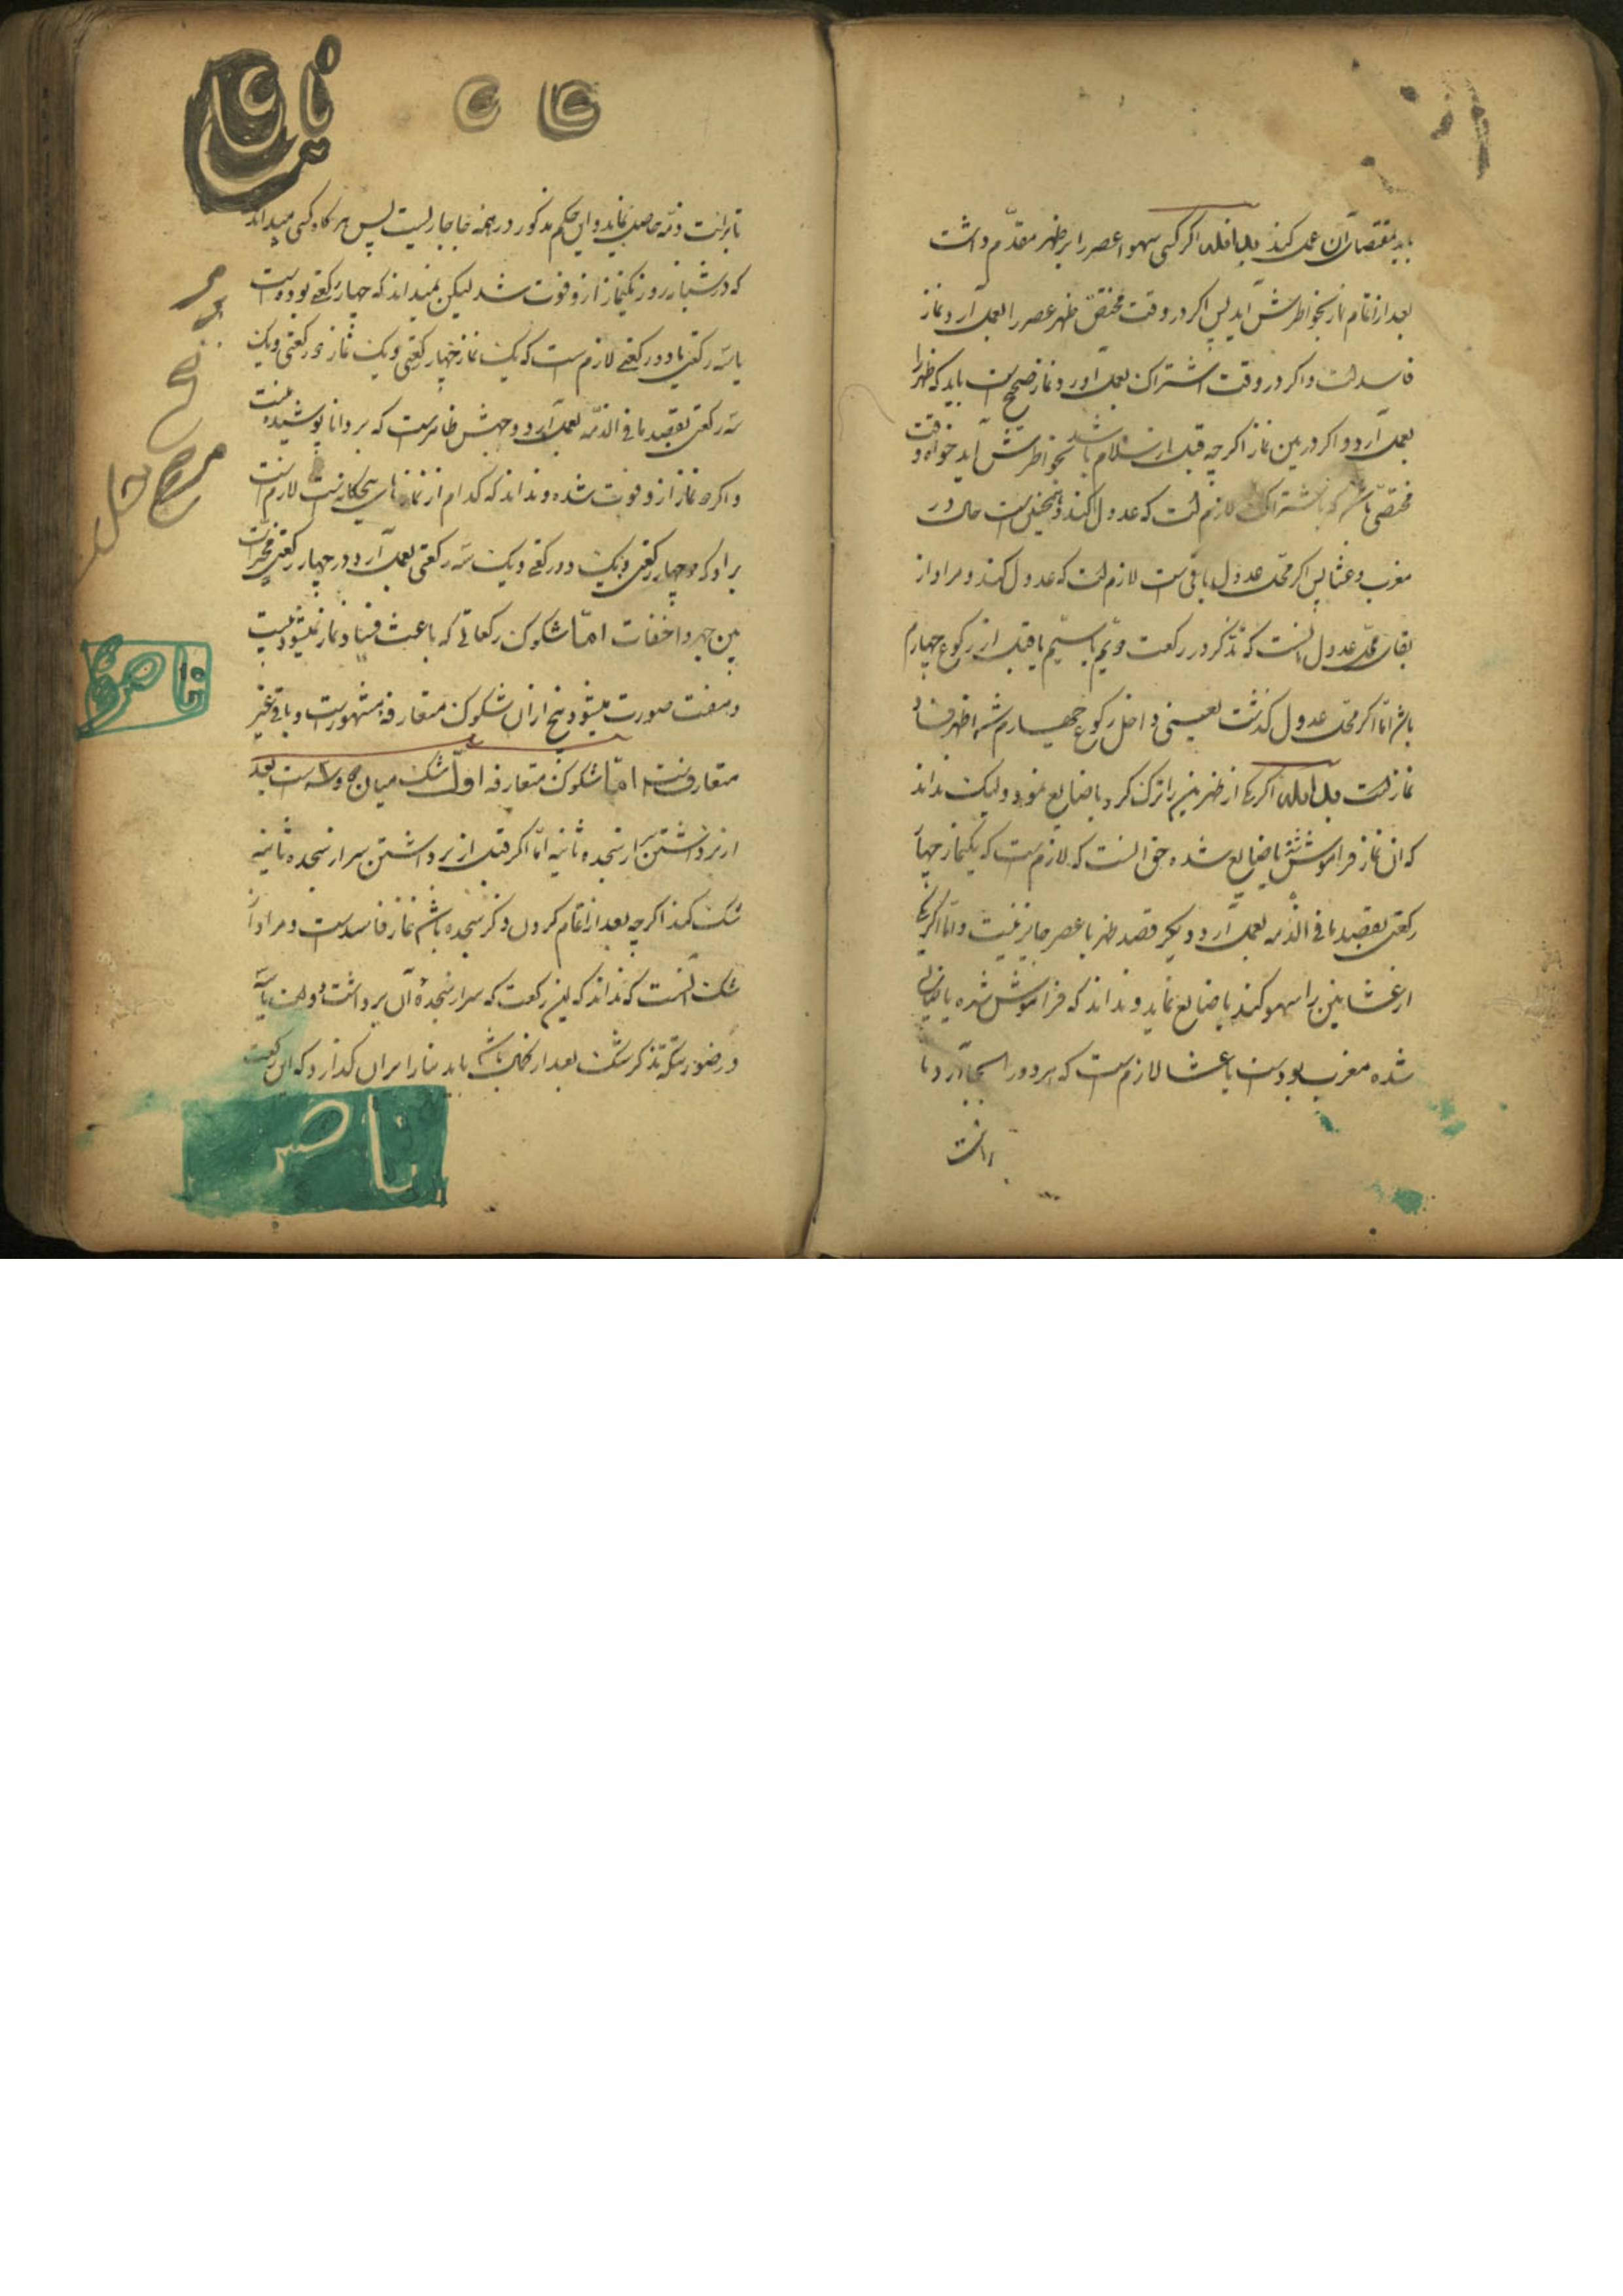 باید بمقتضای آن عمل کند اگر کسی سهوا عصر را بر ظهر مقدّم داشت
بعد از اتمام نماز بخواطرش آید پس اگر در وقت مختصّ ظهر عصر را بعمل آرد نماز
فاسد است و اگر در وقت اشتراک بعمل آورد نماز صحیح است باید که ظهر را
بعمل آرد و اگر در بین نماز اگر چه قبل از سلام باشد بخواطرش آید خواه وقت
مختصّ باشد لازم است که عدول کند و همچنین است حال در
مغرب و عشا پس اگر محل عدول باقی است لازم است که عدول کند و مراد از
بقای محل عدول آنست که تذکر در رکعت دویّم یا سیّم یا قبل از رکوع چهارم
باشد امّا اگر محل عدول گذشت یعنی داخل رکوع چهارم شد اظهر فساد
نماز است اگر یکی از ظهرین را ترک کرد یا ضایع نمود و لیکن نداند
که آن نماز فراموش شده یا ضایع شده حق آنست که لازم است که یکنماز چهار
رکعتی بقصد ما فی الذمه بعمل آرد و یکی قصد ظهر یا عصر جایز نیست و امّا اگر یکی
از عشایین را سهو کند یا ضایع نماید و نداند که فراموش شده یا ضایع
شده مغرب بوده است یا عشا لازم است که هر دو را بجا آرد تا
تا برائت ذمّه حاصل نماید و این حکم مذکور در همه جا جاریست پس هر گاه کسی میداند
که در شبانه روز یکنماز از او فوت شد لیکن نمیداند که چهار رکعتی بوده است
یا سه رکعتی یا دو رکعتی لازم است که یک نماز چهار رکعتی و یک نماز دو رکعتی و یک
سه رکعتی بقصد ما فی الذمّه بعمل آرد و وجهش ظاهر است که بر دانا پوشیده نیست
و اگر دو نماز از او فوت شده و نداند که کدام از نمازهای پنجگانه است لازم است
بر او که دو چهار رکعتی و یک دو رکعتی و یک سه رکعتی بعمل آرد و در چهار رکعتی مخیّر است
بین جهر و اخفات امّا شکوک رکعاتی که باعث فساد نماز نمیشود بیست
و هفت صورت میشود پنج از آن شکوک متعارفه مشهور است و باقی غیر
متعارف است امّا شکوک متعارفه اوّل شک میان دو و سه است بعد
از برداشتن سر از سجده ثانیه امّا اگر قبل از برداشتن سر از سجده ثانیه
شک کند اگر چه بعد از اتمام کردن ذکر سجده باشد نماز فاسد است و مراد از
شک آنست که نداند که این رکعت که سر از سجدهٔ آن برداشت دو است یا سه
در صورتیکه تذکر شک بعد از باشد باید بنا را بر آن گذارد که این رکعت
ناصر
ناصر